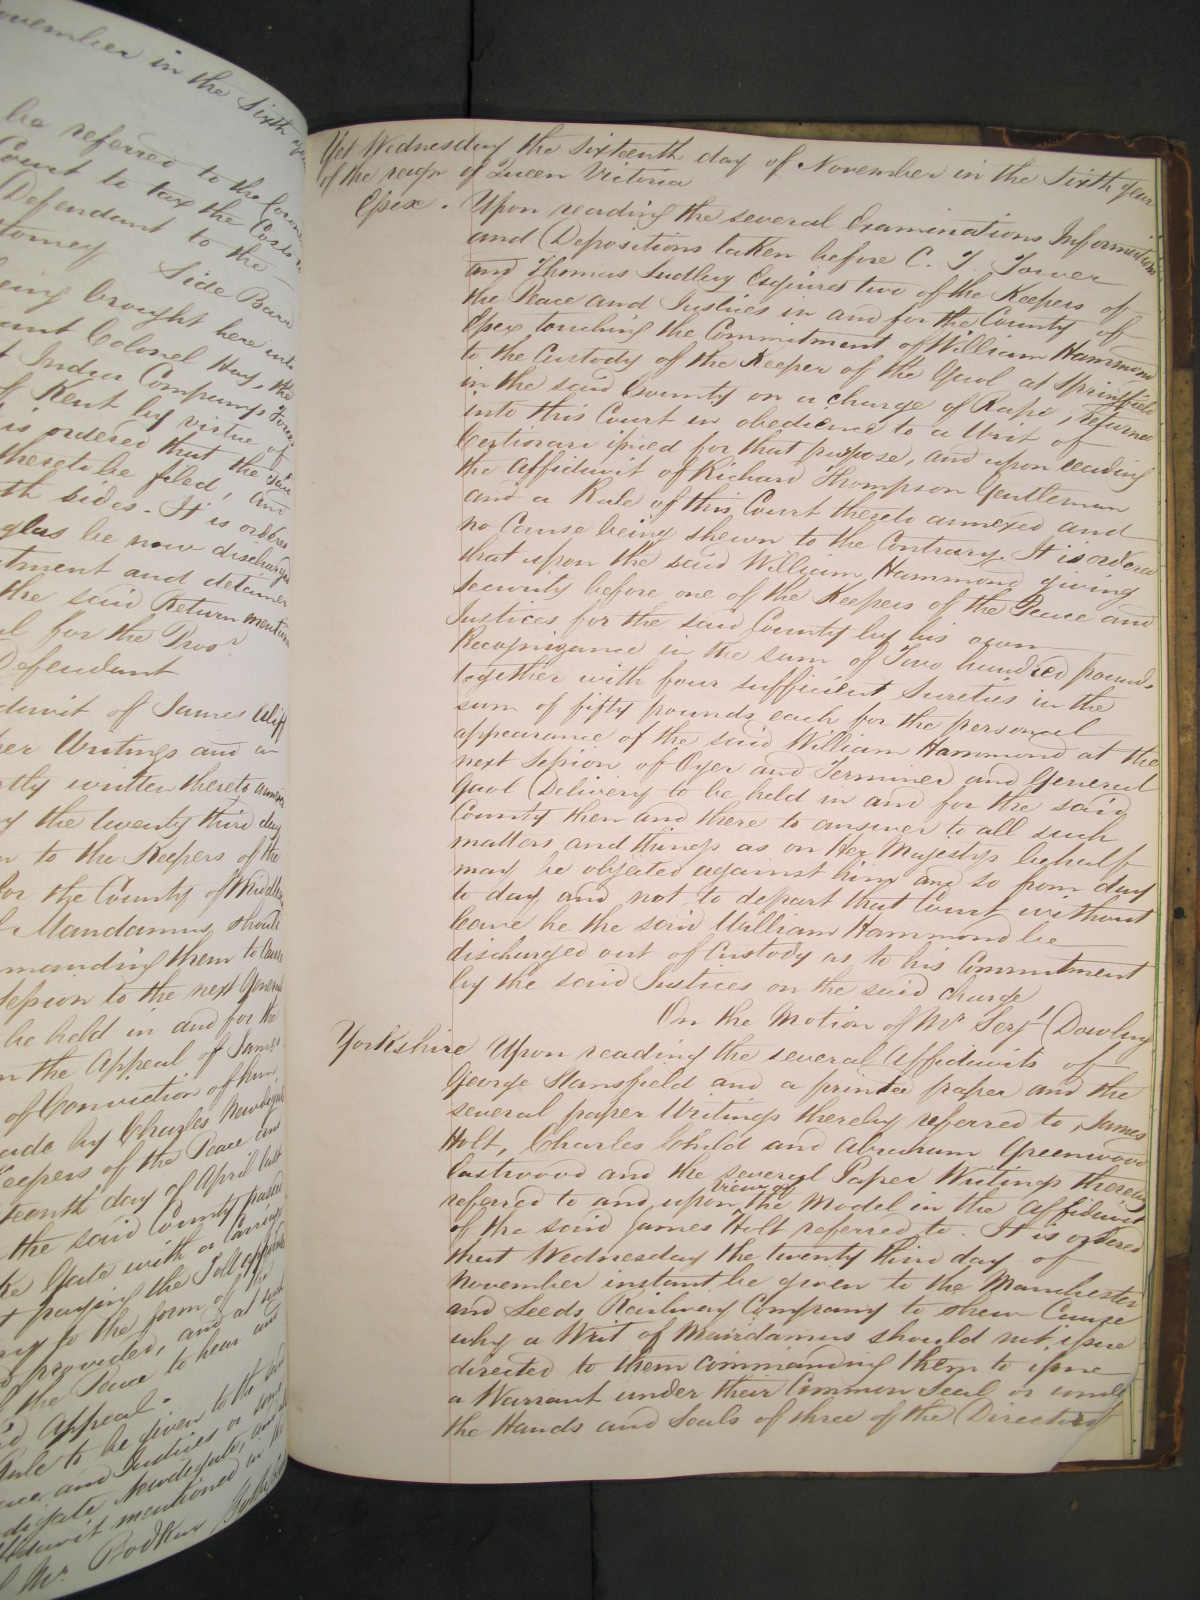 November in the Sixth year
be referred to the Coroner
Court to tax the Costs
Defendant to the
Attorney Side Barr
being brought here into
Colonel Hay, the
India Companys
of Kent by virtue of
is ordered that the said
thereto be filed, and
both sides. It is ordered
be now discharged
and detainer
the said Return mention
for the Pros.r
Defendant
of James
Writings and a
written thereto annexed
the twenty third day
to the Keepers of the
for the County of Middx
Mandamus should
commanding them to cause
Session to the next General
be held in and for the
the Appeal of James
of Conviction of him
made by Charles Newdigate
Keepers of the Peace and
day of April last
the said County passed
Gate with a Carriage
paying the Toll
to the form of the
provided, and at such
the Peace to hear and
Appeal.
Rule to be given to the said
and Justices or some
Newdigate, and
mentioned in the
Mr. Bodkin
Yet Wednesday the Sixteenth day of November in the Sixth year
of the reign of Queen Victoria
Essex. Upon reading the several Examinations Information
and Depositions taken before C. T. Tower
and Thomas Sudbury Esquires two of the Keepers of
the Peace and Justices in and for the County of
Essex touching the Commitment of William Hammond
to the Custody of the Keeper of the Gaol at Springfield
in the said County on a charge of Rape, returned
into this Court in obedience to a Writ of
Certiorari issued for that purpose, and upon reading
the affidavit of Richard Thompson Gentleman
and a Rule of this Court thereto annexed and
no Cause being shewn to the Contrary. It is ordered
that upon the said William Hammond giving
security before one of the Keepers of the Peace and
Justices for the said County by his own
Recognizance in the sum of Two hundred pounds
together with four sufficient Sureties in the
sum of fifty pounds each for the personal
appearance of the said William Hammond at the
next Session of Oyer and Terminer and General
Gaol Delivery to be held in and for the said
County then and there to answer to all such
matters and things as on Her Majestys behalf
may be objected against him and so from day
to day and not to depart that Court without
leave he the said William Hammond be
discharged out of Custody as to his Commitment
by the said Justices on the said charge
On the Motion of Mr. Serjt. Dowling
Yorkshire Upon reading the several affidavits of
George Stansfield and a printed paper and the
several paper Writings thereby referred to, James
Holt, Charles Child and Abraham Greenwood
Eastwood and the several Paper Writings thereby
referred to and upon view of the Model in the affidavit
of the said James Holt referred to. It is ordered
that Wednesday the twenty third day of
November instant be given to the Manchester
and Leeds Railway Company to shew Cause
why a Writ of Mandamus should not issue
directed to them commanding them to issue
a Warrant under their Common Seal or under
the Hands and Seals of three of the Directors